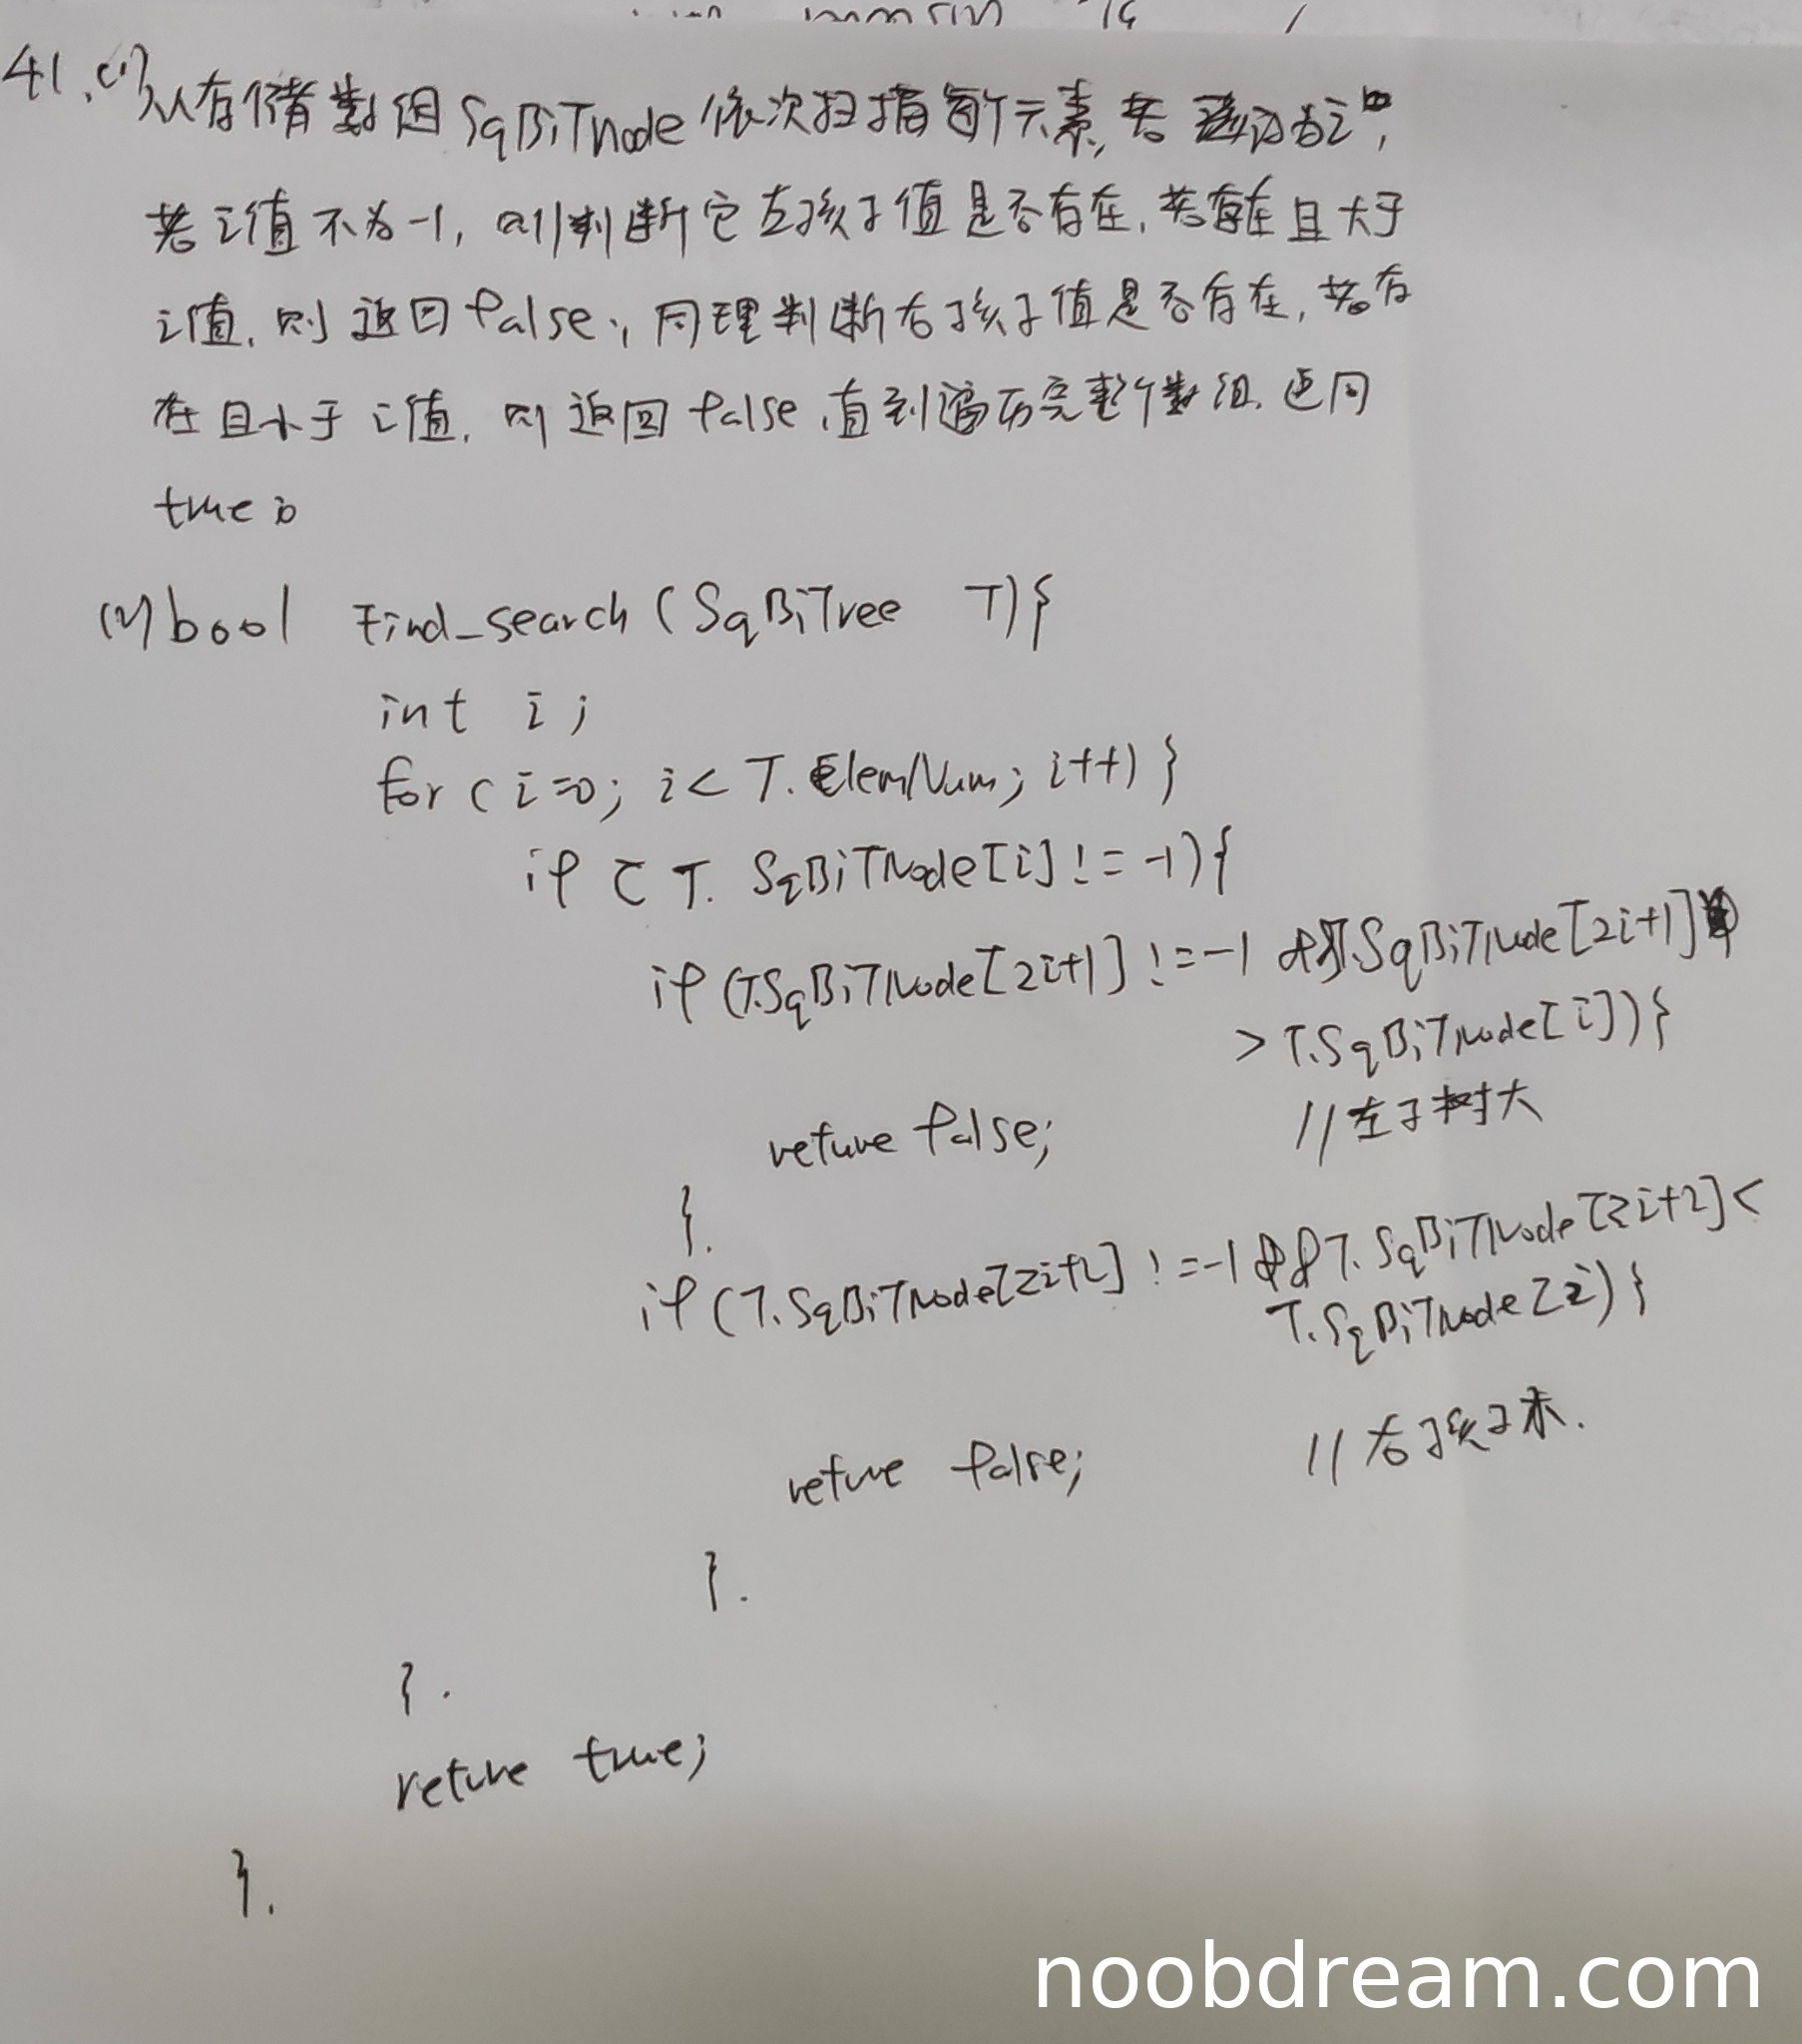 41.(1)从存储数组SqBiTnode依次扫描每个元素,若 记为i,
若i值不为-1,则判断它左孩子值是否存在,若存在且大于
i值,则返回false,同理判断右孩子值是否存在,若存
在且小于i值,则返回false,直到遍历完整个数组,返回
true。
(2)bool Find_search(SqBiTree T){
int i;
for(i=0; i<T.ElemNum; i++) }
if(T. SqBiTNode[i]!=-1){
if(T.SqBiTNode[2i+1]!=-1 &&T.SqBiTNode[2i+1]
>T.SqBiTNode[i]){
reture false; //左子树大
}.
if(T.SqBiTNode[2i+2]!=-1&&T.SqBiTNode[2i+2]<
T.SqBiTNode[i)}
reture false; //右孩子小.
}.
}.
reture true;
}.
noobdream.com